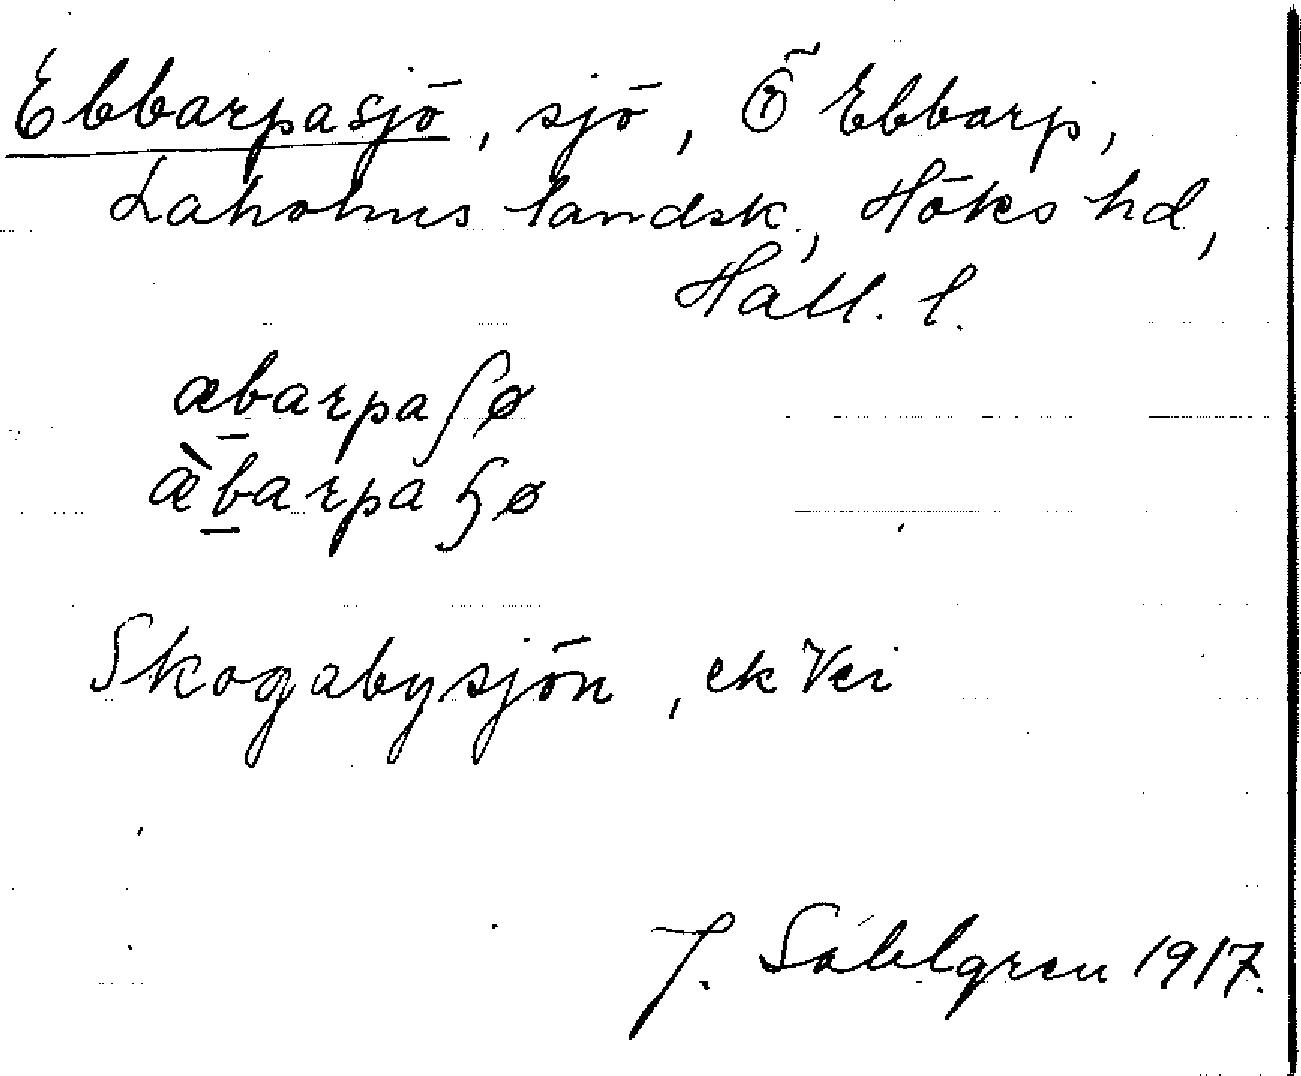 Ebbarpasjö, sjö, Ö Ebbarp,
Laholms landsk., Höks hd,
Hall. l.
æbarpaʃø
æ̀barpaɧø
Skogabysjön, ek Vei
J. Sahlgren 1917.